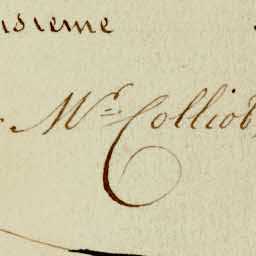 isieme
Mr. Colliot